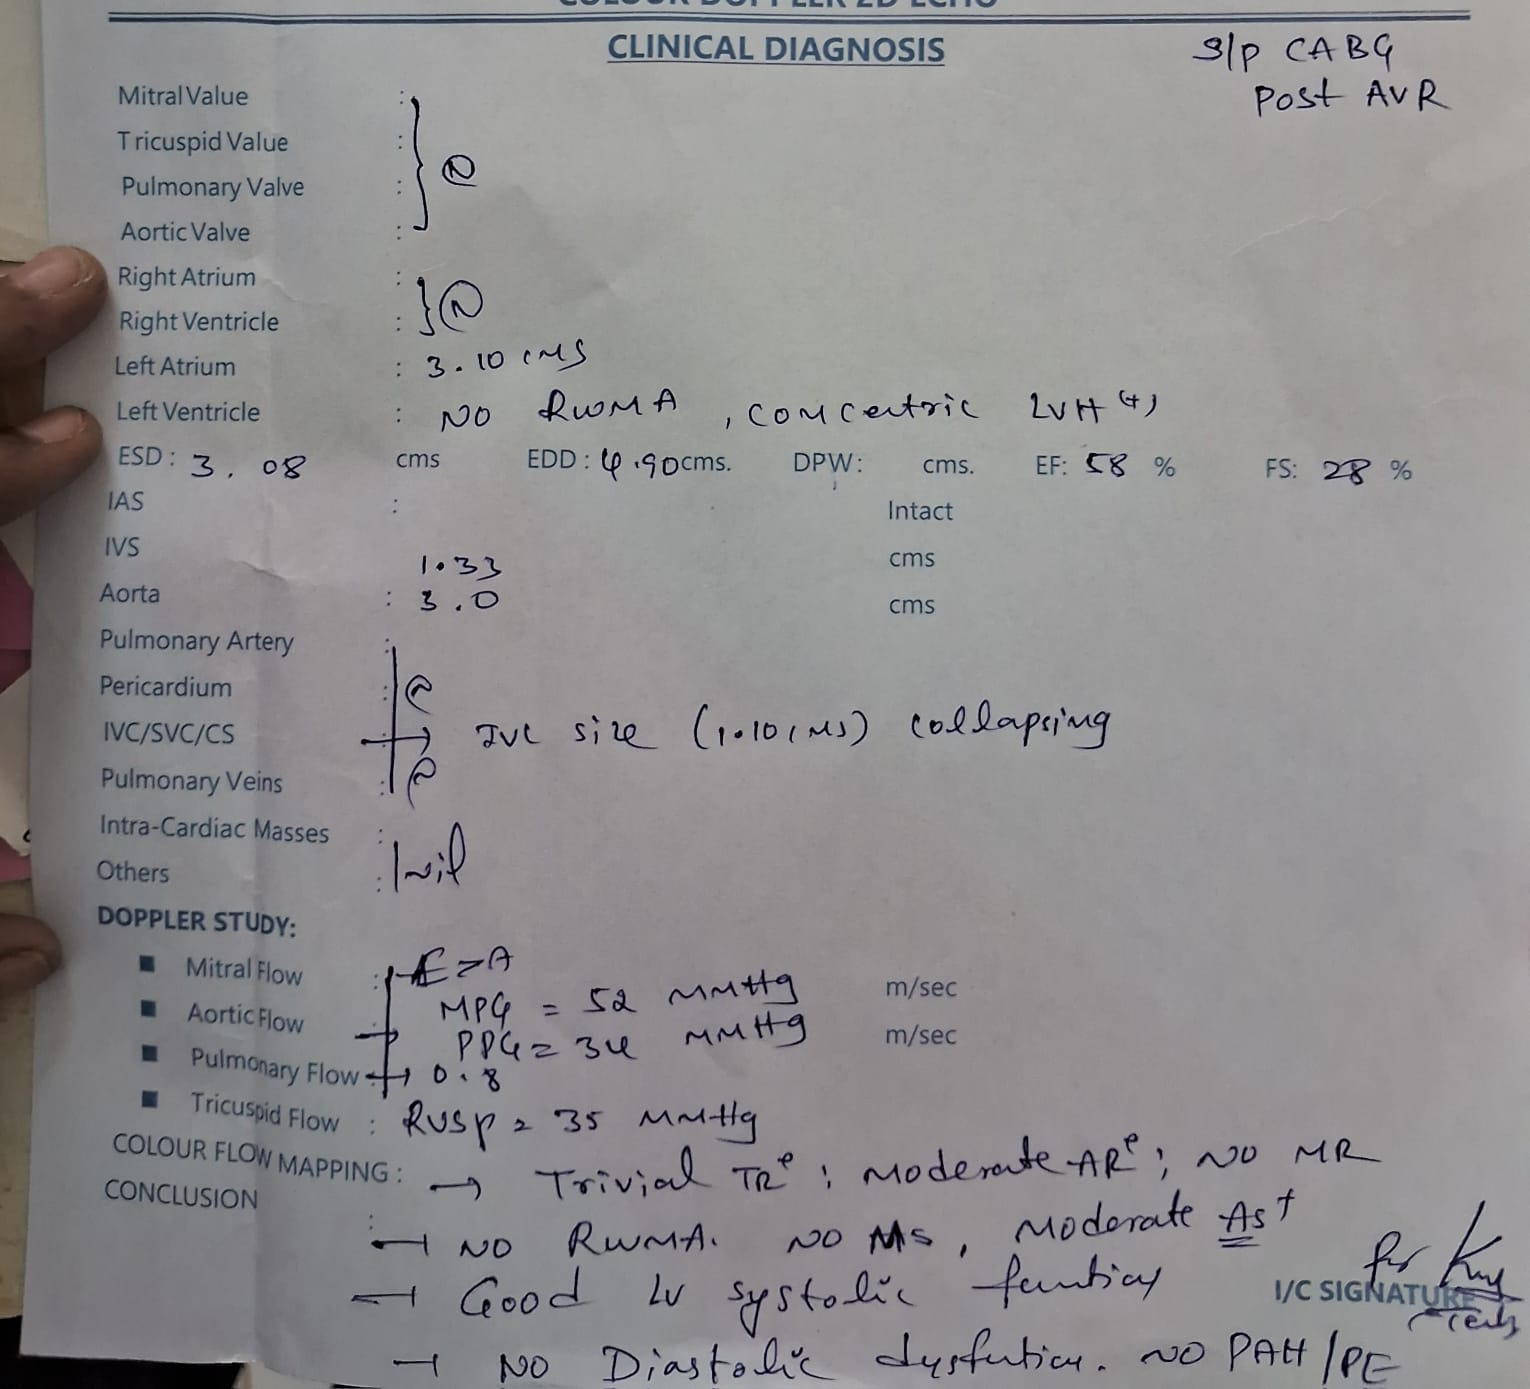 COLOUR DOPPLER 2D ECHO
CLINICAL DIAGNOSIS
S/p CABG
Post AVR
Mitral Value :
Tricuspid Value : N
Pulmonary Valve :
Aortic Valve :
Right Atrium :
Right Ventricle : N
Left Atrium : 3.10 cms
Left Ventricle : NO RWMA, concentric LVH (+)
ESD: 3.08 cms EDD: 4.90 cms. DPW: cms. EF: 58 % FS: 28 %
IAS : Intact
IVS 1.33 cms
Aorta : 3.0 cms
Pulmonary Artery :
Pericardium :
IVC/SVC/CS → IVC size (1.10 cms) collapsing
Pulmonary Veins :
Intra-Cardiac Masses :
Others : Nil
DOPPLER STUDY:
■ Mitral Flow : E>A
■ Aortic Flow → MPG = 52 mmHg m/sec
PPG = 34 mmHg m/sec
■ Pulmonary Flow → 0.8
■ Tricuspid Flow : RVSP = 35 mmHg
COLOUR FLOW MAPPING : → Trivial TR; Moderate AR; NO MR
CONCLUSION :
→ NO RWMA. NO MS, Moderate AS+
→ Good LV systolic function
I/C SIGNATURE
→ NO Diastolic dysfuction. NO PAH/PE